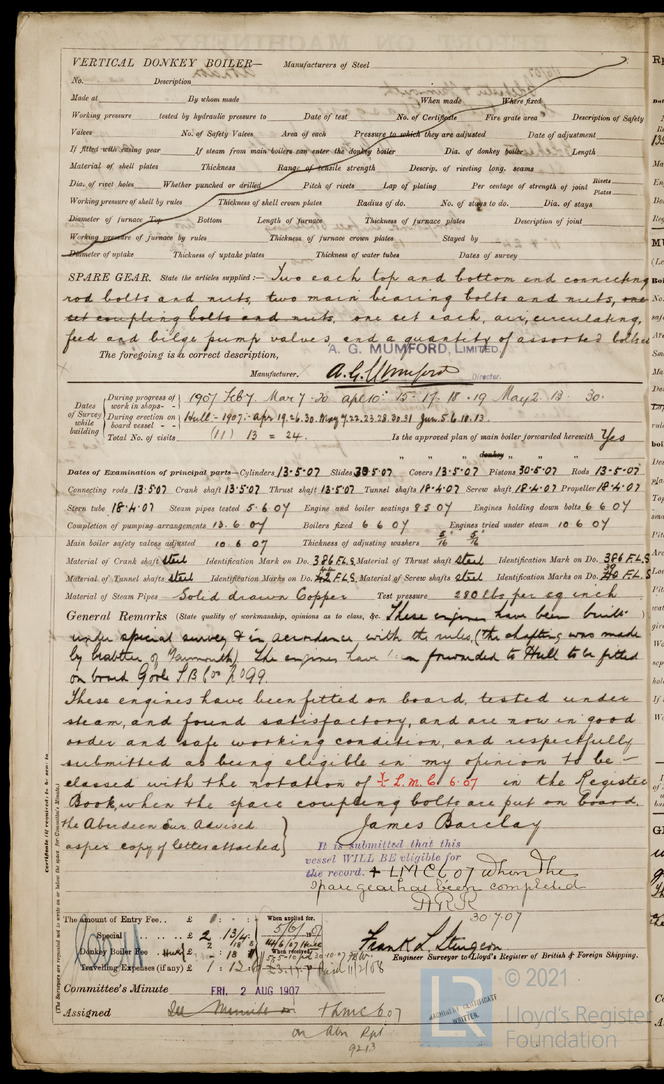 VERTICAL DONKEY BOILER— Manufacturers of Steel
No. Description
Made at By whom made When made Where fixed
Working pressure tested by hydraulic pressure to Date of test No. of Certificate Fire grate area Description of Safety
Valves No. of Safety Valves Area of each Pressure to which they are adjusted Date of adjustment
If fitted with easing gear If steam from main boilers can enter the donkey boiler Dia. of donkey boiler Length
Material of shell plates Thickness Range of tensile strength Descrip. of riveting long. seams
Dia. of rivet holes Whether punched or drilled Pitch of rivets Lap of plating Per centage of strength of joint Rivets Plates
Working pressure of shell by rules Thickness of shell crown plates Radius of do. No. of stays to do. Dia. of stays
Diameter of furnace Top Bottom Length of furnace Thickness of furnace plates Description of joint
Working pressure of furnace by rules Thickness of furnace crown plates Stayed by
Diameter of uptake Thickness of uptake plates Thickness of water tubes Dates of survey
SPARE GEAR. State the articles supplied:— Two each top and bottom end connecting
rod bolts and nuts, two main bearing bolts and nuts, one
set coupling bolts and nuts, one set each, air, circulating,
feed and bilge pump valves and a quantity of assorted bolts
The foregoing is a correct description,
A. G. MUMFORD, LIMITED,
Manufacturer. A. G. Mumford Director.
Dates of Survey while building
During progress of work in shops - - 1907 Feb 7. Mar 7. 20 apl 10. 15 - 17. 18 - 19 May 2. 13. 30.
During erection on board vessel - - Hull - 1907:- Apr 19.26.30. May 7.22.23.28.30.31 Jun. 5.6.10.13.
Total No. of visits (11) 13 = 24. Is the approved plan of main boiler forwarded herewith Yes
" " " donkey " "
Dates of Examination of principal parts—Cylinders 13.5.07 Slides 30.5.07 Covers 13.5.07 Pistons 30.5.07 Rods 13.5.07
Connecting rods 13.5.07 Crank shaft 13.5.07 Thrust shaft 13.5.07 Tunnel shafts 18.4.07 Screw shaft 18.4.07 Propeller 18.4.07
Stern tube 18.4.07 Steam pipes tested 5.6.07 Engine and boiler seatings 8.5.07 Engines holding down bolts 6.6.07
Completion of pumping arrangements 13.6.07 Boilers fixed 6.6.07 Engines tried under steam 10.6.07
Main boiler safety valves adjusted 10.6.07 Thickness of adjusting washers 5/16 5/16
Material of Crank shaft steel Identification Mark on Do. 386 F.L.S. Material of Thrust shaft steel Identification Mark on Do. 386 F.L.S
Material of Tunnel shafts steel Identification Marks on Do. F.L.S. Material of Screw shafts steel Identification Marks on Do. F.L.S
Material of Steam Pipes Solid drawn Copper Test pressure 280 lbs per sq inch
General Remarks (State quality of workmanship, opinions as to class, &c. These engines have been built
under special survey & in accordance with the rules, (the shafting was made
by Crabtree of Yarmouth). The engines have been forwarded to Hull to be fitted
on board Goole S.B. Co's No 99.
These engines have been fitted on board, tested under
steam, and found satisfactory, and are now in good
order and safe working condition, and respectfully
submitted as being eligible in my opinion to be -
classed with the notation of + L.M.C. 6.07 in the Register
Book, when the spare coupling bolts are put on board.
the Aberdeen Sur. Advised
as per copy of letter attached
James Barclay
It is submitted that this
vessel WILL BE eligible for
the record. + LMC 6 07 When the
spare gear has been completed
30.7.07
The amount of Entry Fee.. £
Special .. £ 2. 13/4
When applied for. 5/6/07
Donkey Boiler Fee
When received,
Travelling Expenses (if any) £
Frank L. Sturgeon
Engineer Surveyor to Lloyd's Register of British & Foreign Shipping.
Committee's Minute FRI. 2 AUG 1907
Assigned See Minute on + LMC 6 07
on Abn Rpt
9213
MACHINERY CERTIFICATE WRITTEN.
Certificate (if required) to be sent to
(The Surveyors are requested not to write on or below the space for Committee's Minute.)
LR © 2021
Lloyd's Register
Foundation